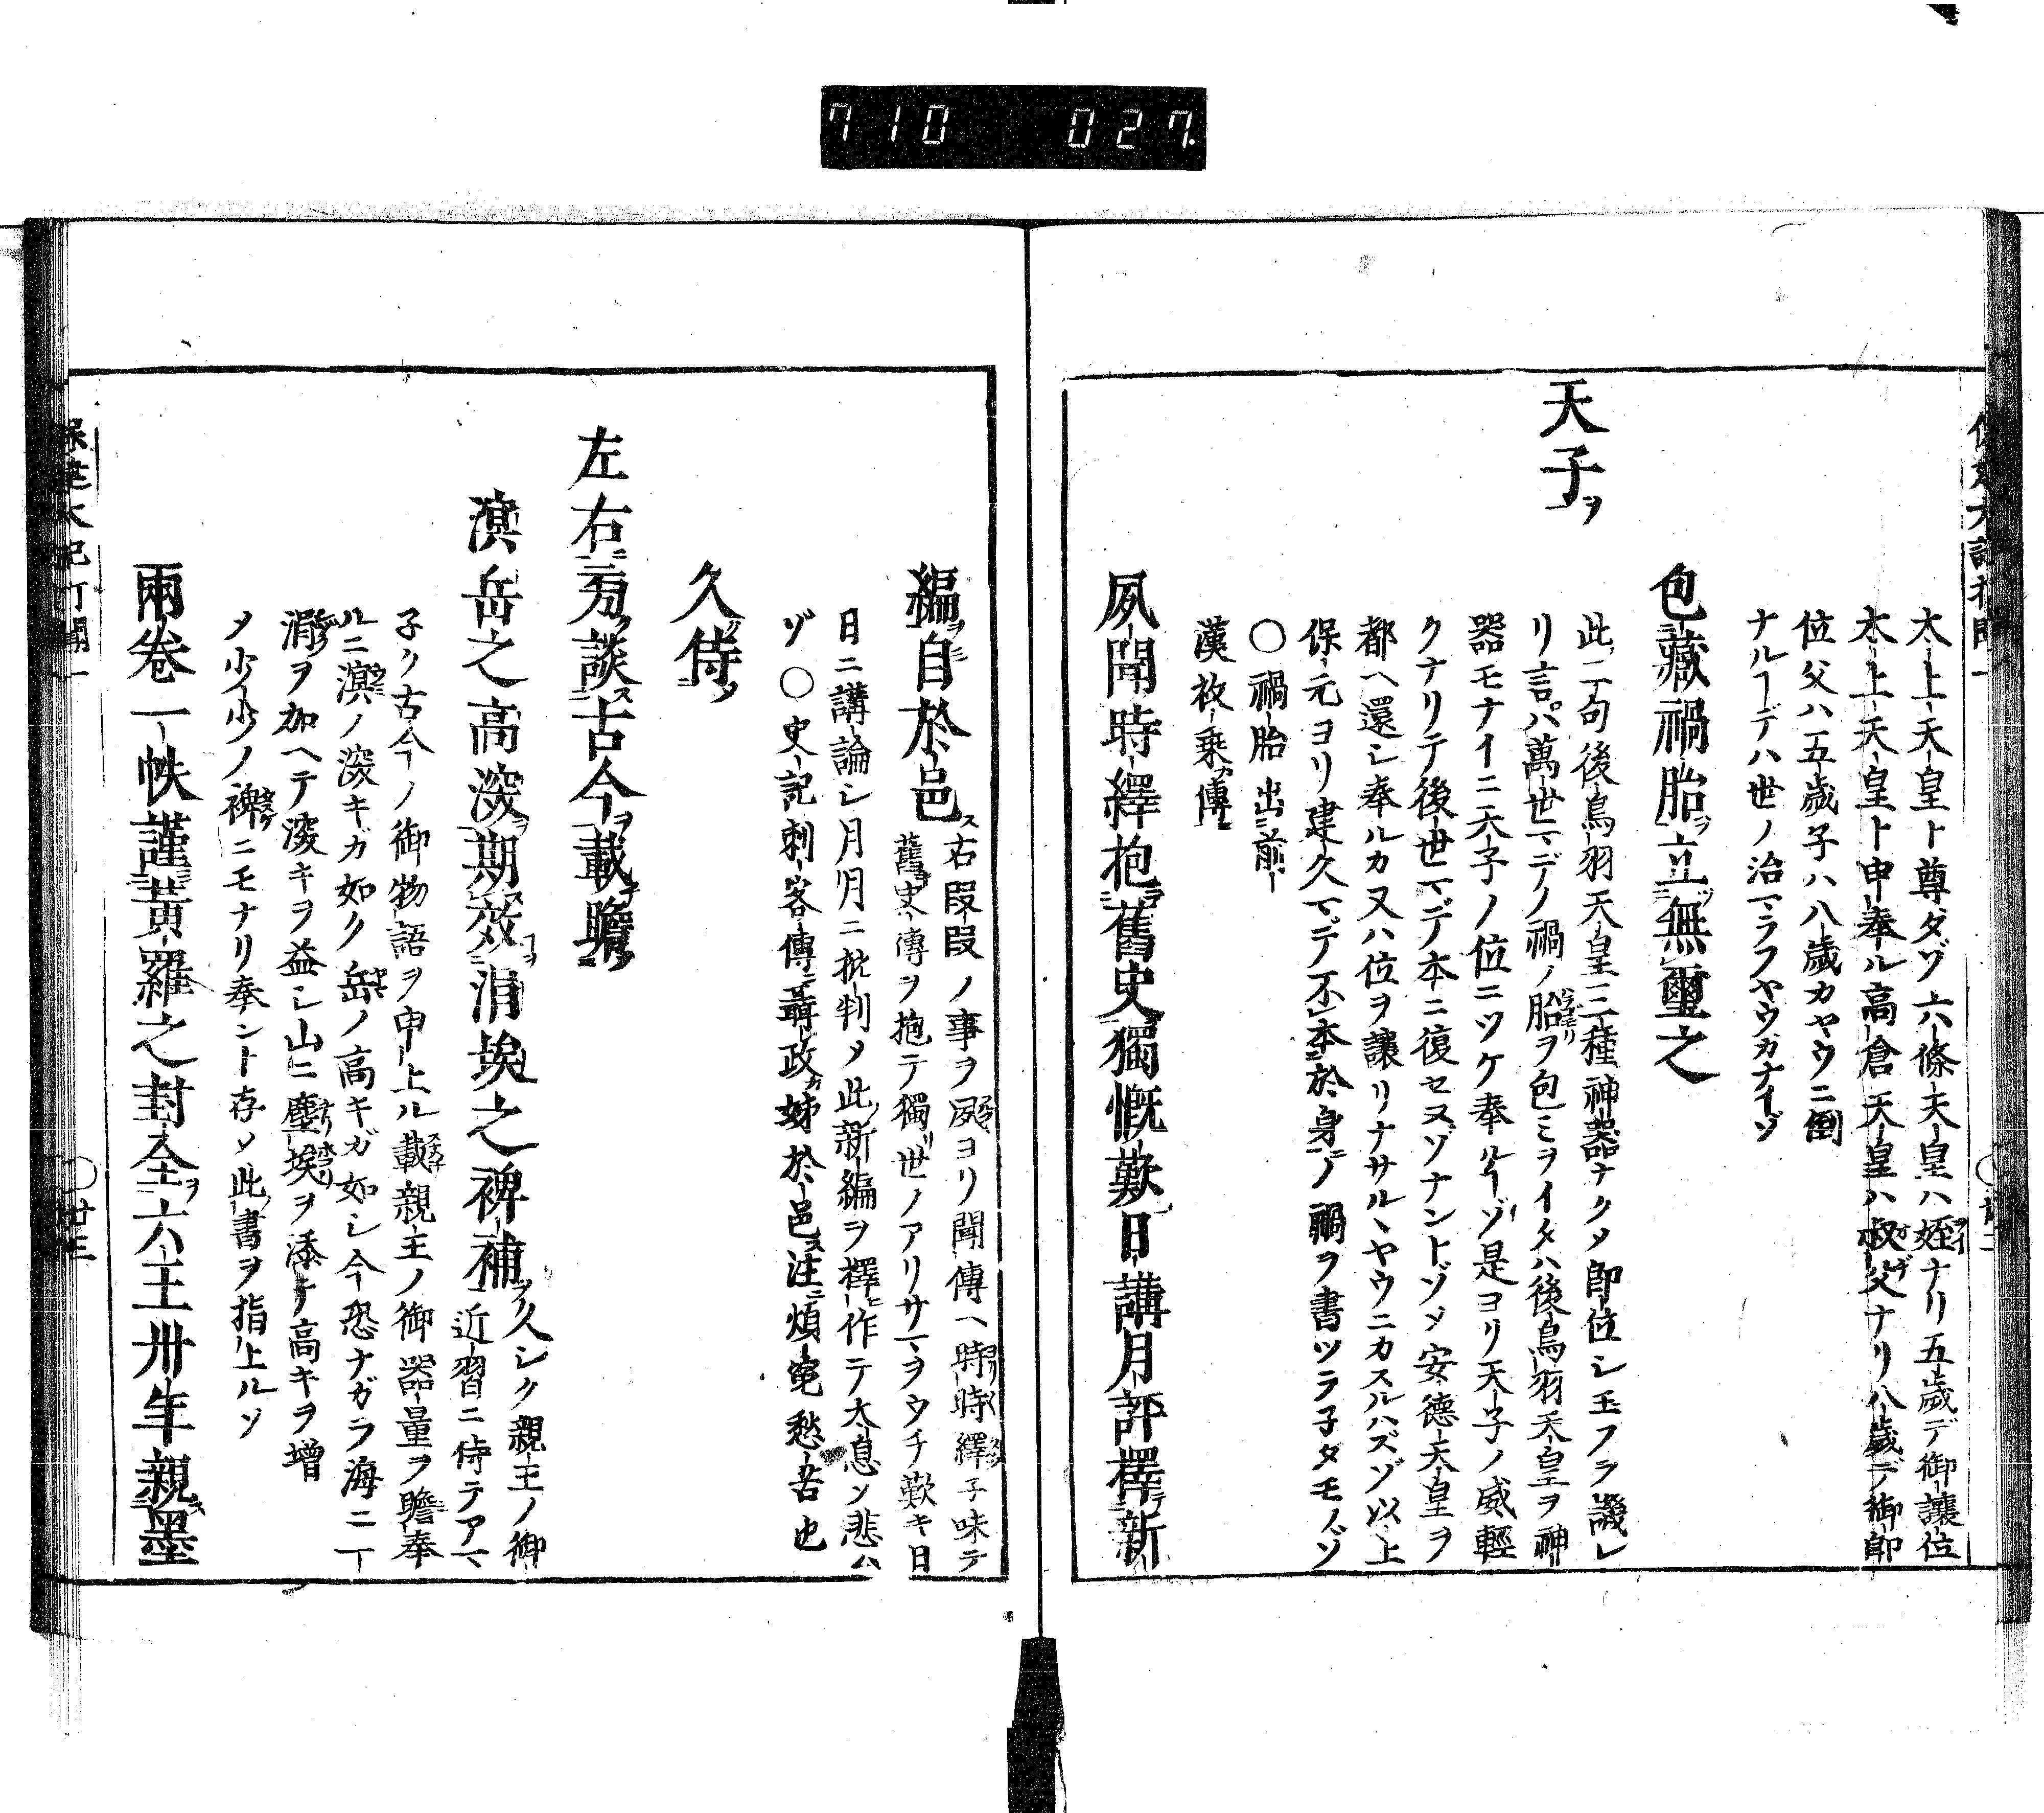 710 027.
太上天皇ト尊タゾ六條天皇ハ姪ナリ五歲デ御讓位
太上天皇ト申奉ル高倉天皇ハ叔父ナリ八歲デ御即
位父ハ五歲子ハ八歲カヤウニ倒
ナルヿデハ世ノ治マラフヤウカナイゾ
包藏禍胎ヲ立無璽之
天子ヲ
此二句後鳥羽天皇三種神器ナクメ即位シ玉フヲ譏レ
リ言ハ萬世マデノ禍ノ胎ヲ包ミヲイタハ後鳥羽天皇ヲ神
器モナイニ天子ノ位ニツケ奉ルヿゾ是ヨリ天子ノ威輕
クナリテ後世マデ本ニ復セヌゾナントゾメ安德天皇ヲ
都ヘ還シ奉ルカ又ハ位ヲ讓リナサルヽヤウニカスルハズゾ以上
保元ヨリ建久マデ不本於身ノ禍ヲ書ツラ子タモノゾ
○禍胎出前
漢枚乘傳
夙聞時繹抱舊史獨慨歎日講月評擇新
編自於邑ス
右叚叚ノ事ヲ夙ヨリ聞傳ヘ時時繹子味テ
舊史傳ヲ抱テ獨世ノアリサマヲウチ歎キ日
日ニ講論シ月月ニ批判メ此新編ヲ擇作テ大息ソ悲ム
ゾ○史記刺客傳聶政姊於邑注煩寃愁苦也
久侍
左右旁談古今ヲ載瞻
溟岳之高深期效涓埃之裨補
久シク親王ノ御
近習ニ侍テアマ
子ク古今ノ御物語ヲ申上ル載親王ノ御器量ヲ瞻奉
ルニ溟ノ深キガ如ク岳ノ高キガ如シ今恐ナガラ海ニ一
涓ヲ加ヘテ深キヲ益シ山ニ塵埃ヲ添テ高キヲ增
メ少少ノ裨ニモナリ奉ント存メ此書ヲ指上ルゾ
兩卷一帙謹黃羅之封全六王卅年親墨
保建大記打聞一
○廿三